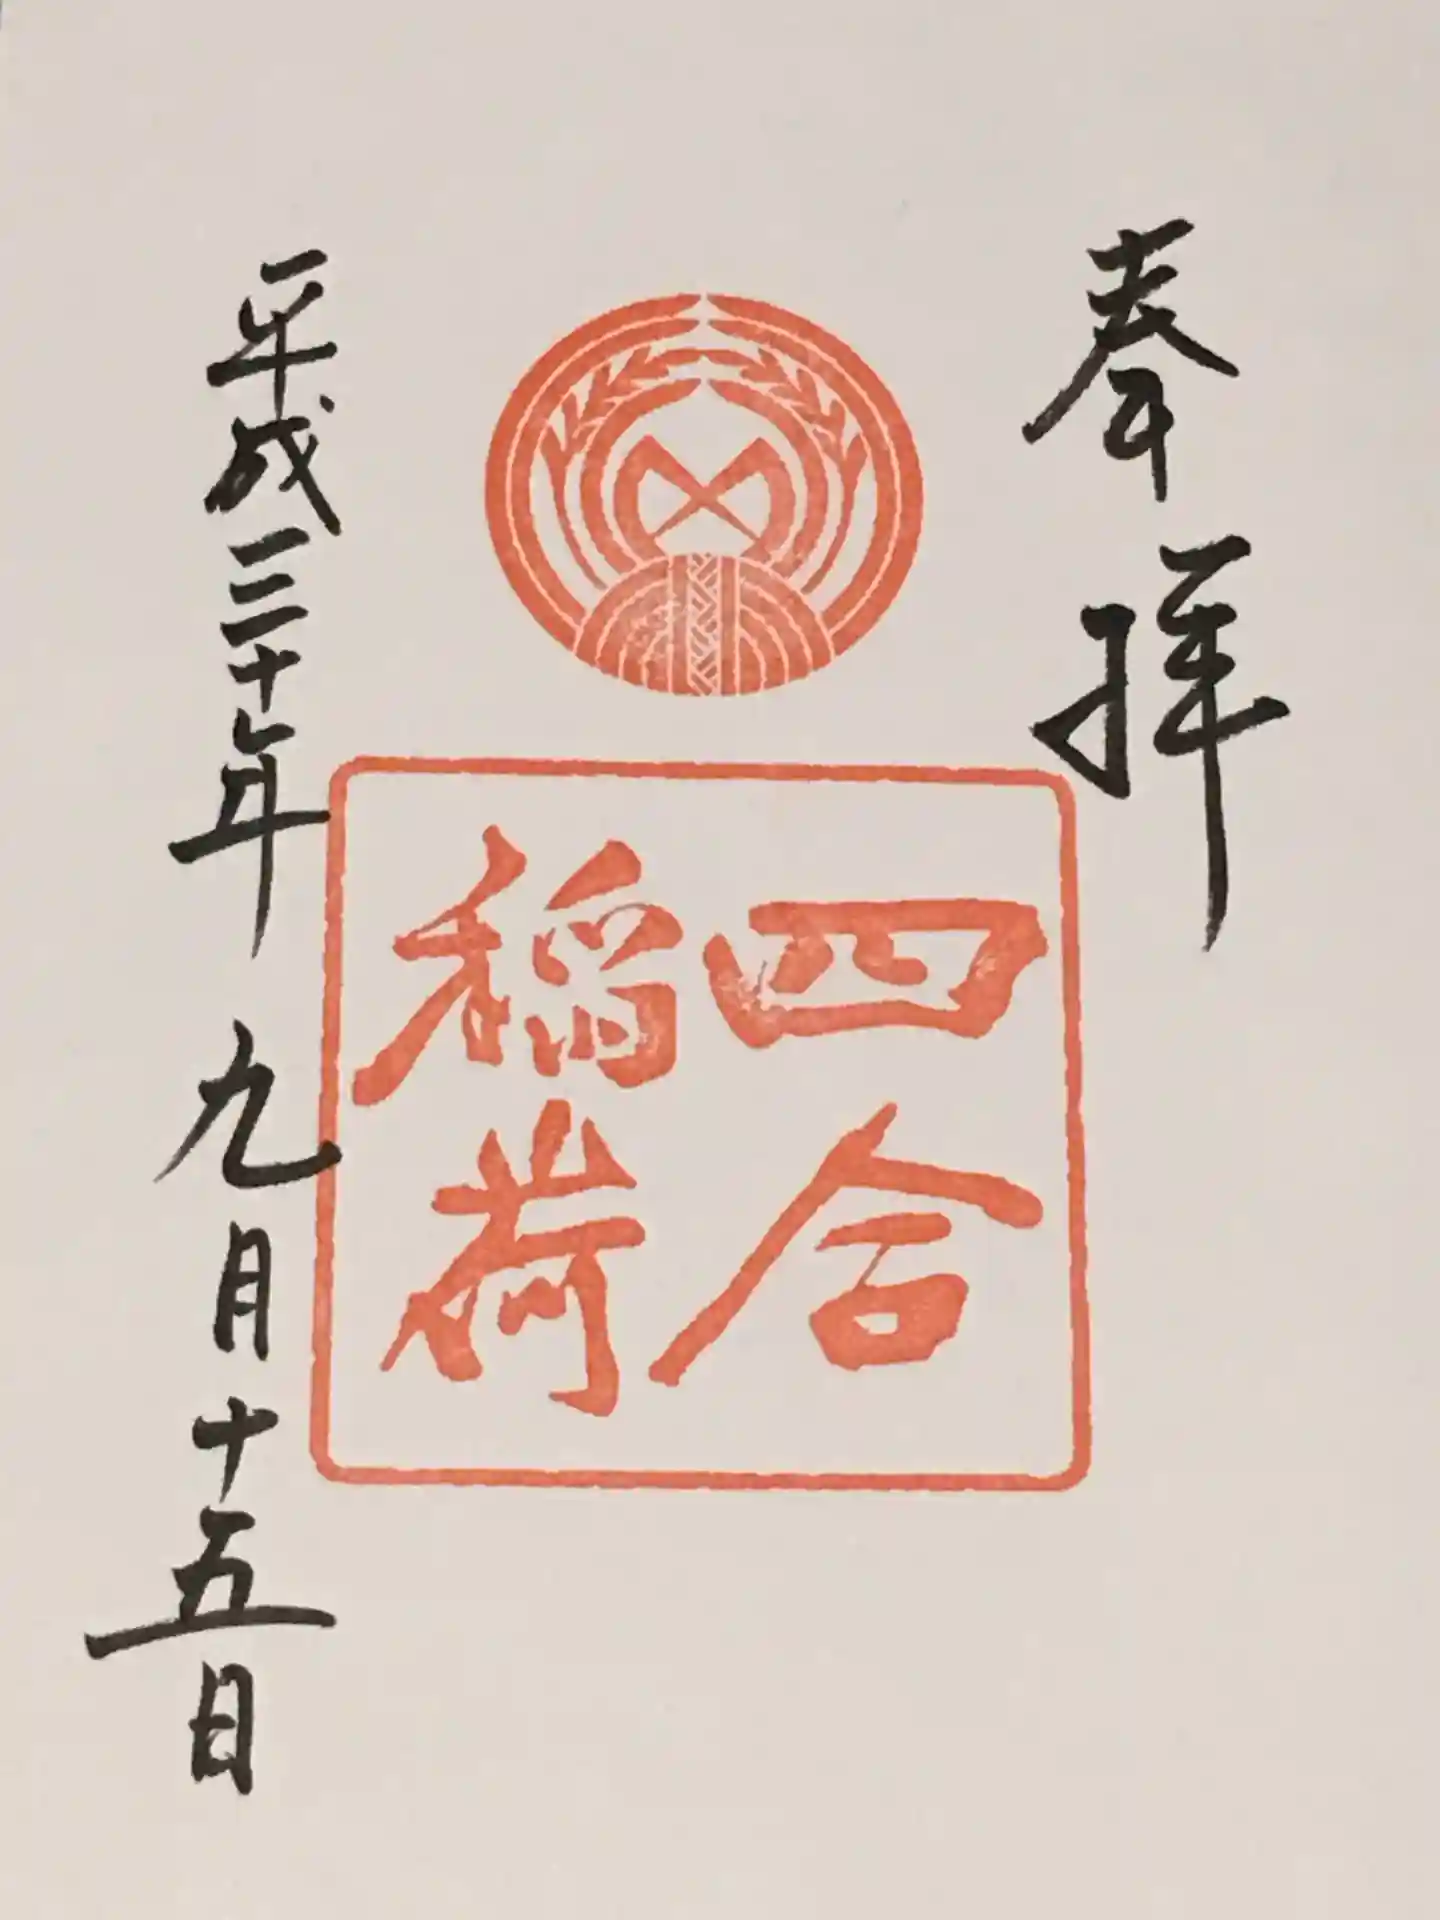 奉拝
四合
稲荷
平成三十年 九月十五日